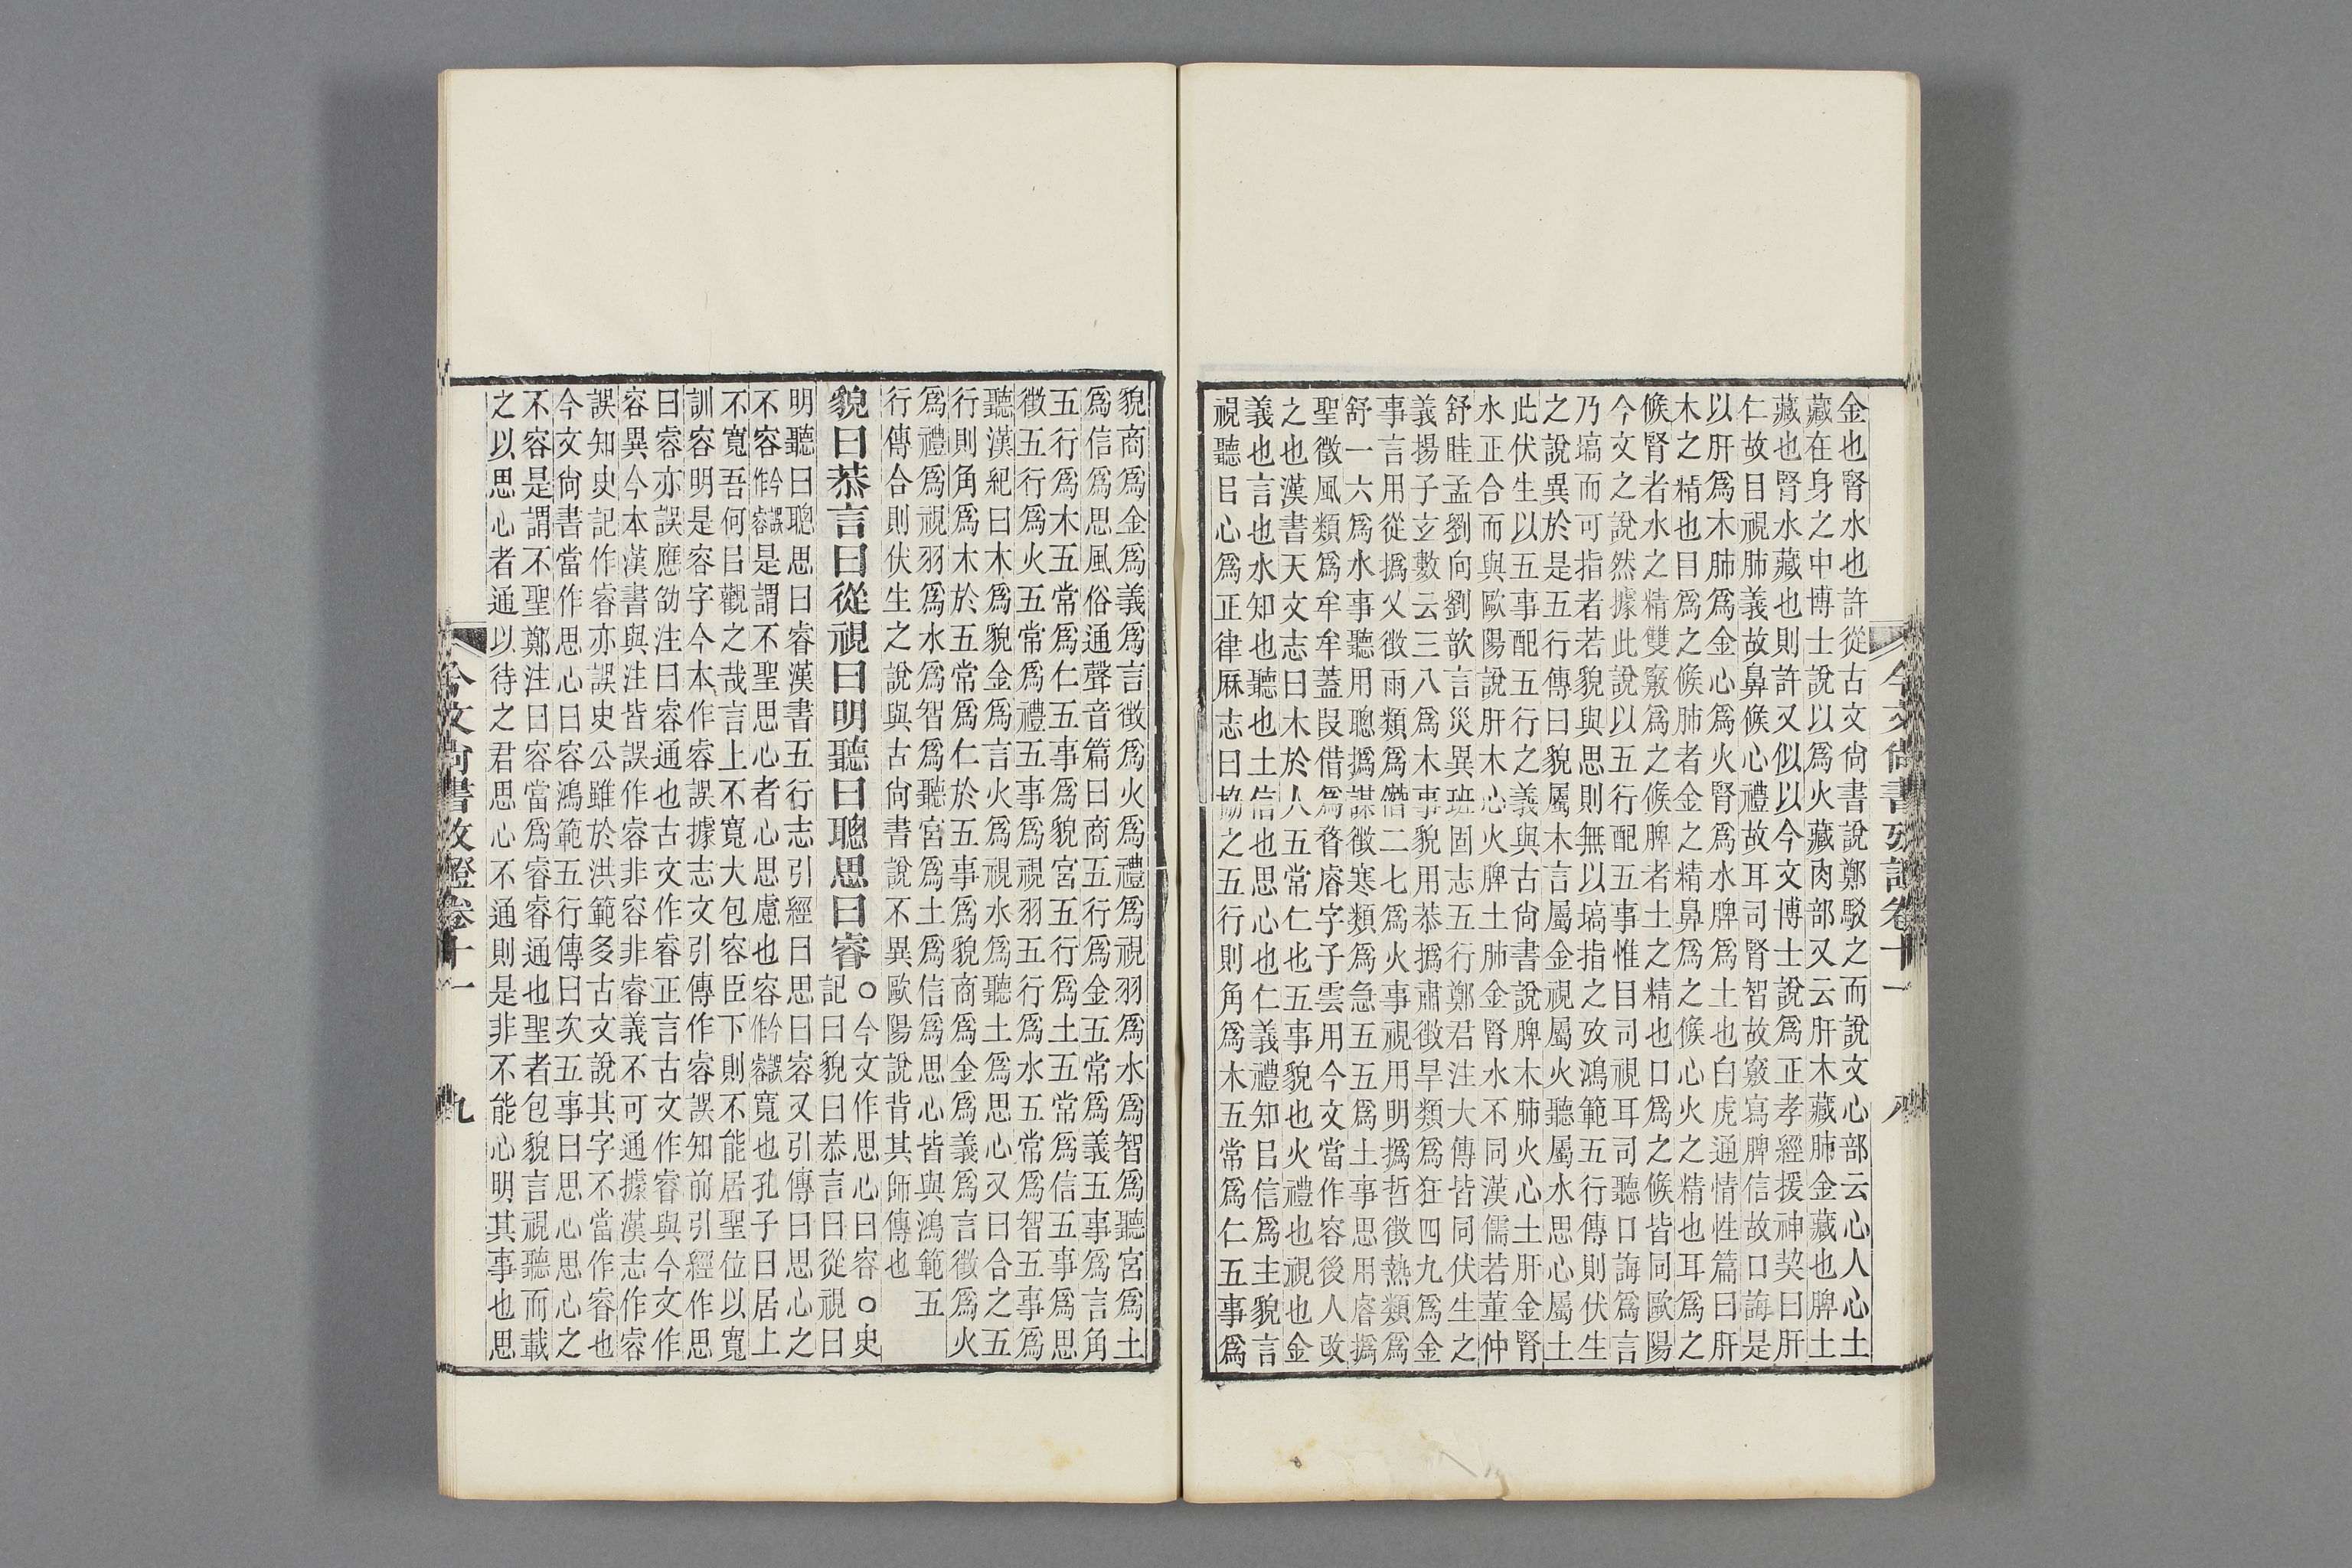 金也腎水也許從古文尙書說鄭駁之而說文心部云心人心土
藏在身之中博士說以爲火藏肉部又云肝木藏肺金藏也脾土
藏也腎水藏也則許又似以今文博士說爲正孝經援神契曰肝
仁故目視肺義故鼻候心禮故耳司腎智故竅寫脾信故口誨是
以肝爲木肺爲金心爲火腎爲水脾爲土也白虎通情性篇曰肝
木之精也目爲之候肺者金之精鼻爲之候心火之精也耳爲之
候腎者水之精雙竅爲之候脾者土之精也口爲之候皆同歐陽
今文之說然據此說以五行配五事惟目司視耳司聽口誨爲言
乃塙而可指者若貌與思則無以塙指之攷鴻範五行傳則伏生
之說異於是五行傳曰貌屬木言屬金視屬火聽屬水思心屬土
此伏生以五事配五行之義與古尙書說脾木肺火心土肝金腎
水正合而與歐陽說肝木心火脾土肺金腎水不同漢儒若董仲
舒眭孟劉向劉歆言災異班固志五行鄭君注大傳皆同伏生之
義揚子㚇數云三八爲木事貌用恭撝肅徵旱類爲狂四九爲金
事言用從撝乂徵雨類爲僭二七爲火事視用明撝哲徵熱類爲
舒一六爲水事聽用聰撝謀徵寒類爲急五五爲土事思用睿撝
聖徵風類爲牟牟蓋叚借爲瞀睿字子雲用今文當作容後人改
之也漢書天文志曰木於人五常仁也五事貌也火禮也視也金
義也言也水知也聽也土信也思心也仁義禮知㠯信爲主貌言
視聽㠯心爲正律厤志曰協之五行則角爲木五常爲仁五事爲
今文尙書攷證卷十一
八
貌商爲金爲義爲言徵爲火爲禮爲視羽爲水爲智爲聽宮爲土
爲信爲思風俗通聲音篇曰商五行爲金五常爲義五事爲言角
五行爲木五常爲仁五事爲貌宮五行爲土五常爲信五事爲思
徵五行爲火五常爲禮五事爲視羽五行爲水五常爲智五事爲
聽漢紀曰木爲貌金爲言火爲視水爲聽土爲思心又曰合之五
行則角爲木於五常爲仁於五事爲貌商爲金爲義爲言徵爲火
爲禮爲視羽爲水爲智爲聽宮爲土爲信爲思心皆與鴻範五
行傳合則伏生之說與古尙書說不異歐陽說背其師傳也
貌曰恭言曰從視曰明聽曰聰思曰睿○今文作思心曰容○史
記曰貌曰恭言曰從視曰
明聽曰聰思曰睿漢書五行志引經曰思曰容又引傳曰思心之
不容今誤作睿是謂不聖思心者心思慮也容今誤作睿寬也孔子曰居上
不寬吾何㠯觀之哉言上不寬大包容臣下則不能居聖位以寬
訓容明是容字今本作睿誤據志文引傳作容誤知前引經作思
曰睿亦誤應劭注曰容通也古文作睿正言古文作睿與今文作
容異今本漢書與注皆誤作睿非容非睿義不可通據漢志作容
誤知史記作睿亦誤史公雖於洪範多古文說其字不當作睿也
今文尙書當作思心曰容鴻範五行傳曰次五事曰思心思心之
不容是謂不聖鄭注曰容當爲睿睿通也聖者包貌言視聽而載
之以思心者通以待之君思心不通則是非不能心明其事也思
今文尙書攷證卷十一
九